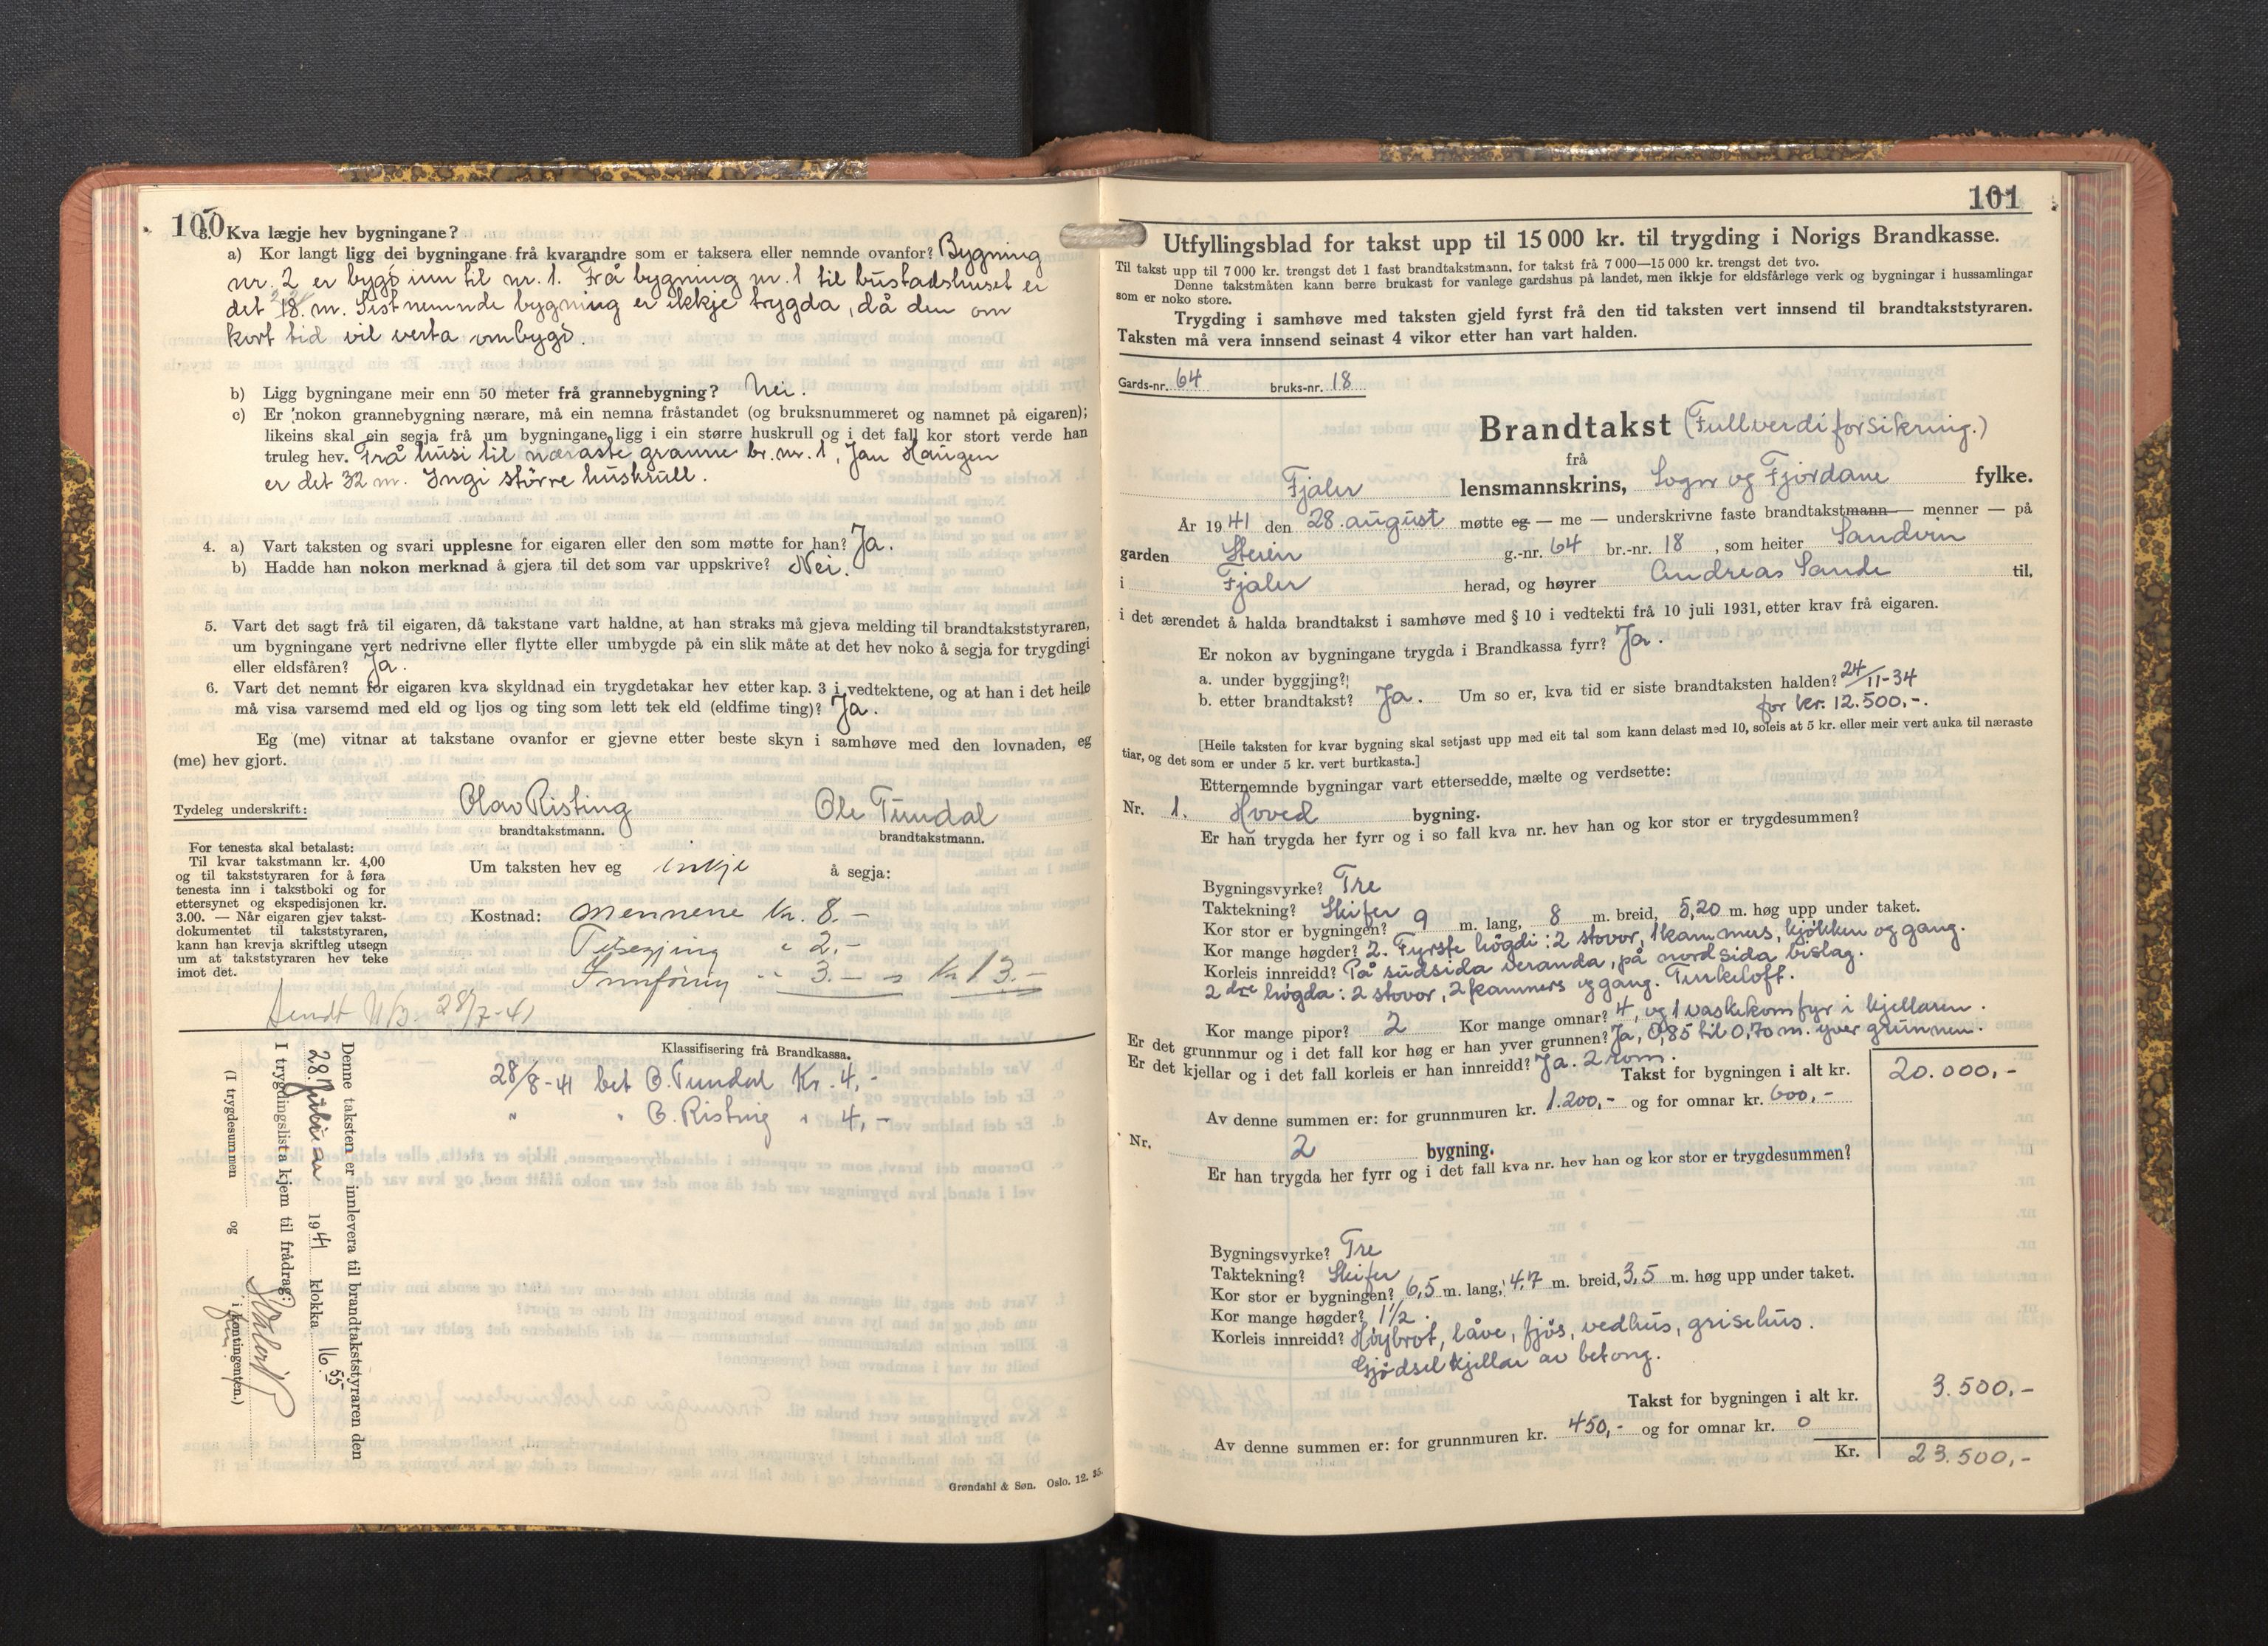 100
3. Kva lægje hev bygningane?
a) Kor langt ligg dei bygningane frå kvarandre som er taksera eller nemnde ovanfor? Bygning
nr. 2 er bygd inn til nr. 1. Frå bygning nr. 1 til bustadshuset er
det 18. m. Sistnemnde bygning er ikkje trygda, då den om
kort tid vil verta ombygd.
b) Ligg bygningane meir enn 50 meter frå grannebygning? Nei.
c) Er nokon grannebygning nærare, må ein nemna fråstandet (og bruksnummeret og namnet på eigaren);
likeins skal ein segja frå um bygningane ligg i ein større huskrull og i det fall kor stort verde han
truleg hev. Frå husi til næraste granne br. nr. 1, Jan Haugen
er det 32 m. Ingi större huskrull.
4. a) Vart taksten og svari upplesne for eigaren eller den som møtte for han? Ja.
b) Hadde han nokon merknad å gjera til det som var uppskrive? Nei.
5. Vart det sagt frå til eigaren, då takstane vart haldne, at han straks må gjeva melding til brandtakststyraren,
um bygningane vert nedrivne eller flytte eller umbygde på ein slik måte at det hev noko å segja for trygdingi
eller eldsfåren? Ja.
6. Vart det nemnt for eigaren kva skyldnad ein trygdetakar hev etter kap. 3 i vedtektene, og at han i det heile
må visa varsemd med eld og ljos og ting som lett tek eld (eldfime ting)? Ja.
Eg (me) vitnar at takstane ovanfor er gjevne etter beste skyn i samhøve med den lovnaden, eg
(me) hev gjort.
Tydeleg underskrift: Olav Risting Ole Tundal
brandtakstmann. brandtakstmann.
For tenesta skal betalast:
Til kvar takstmann kr. 4,00
og til takststyraren for å føra
tenesta inn i takstboki og for
ettersynet og ekspedisjonen kr.
3.00. — Når eigaren gjev takst-
dokumentet til takststyraren,
kann han krevja skriftleg utsegn
um at takststyraren hev teke
imot det.
Um taksten hev eg inkje å segja:
Kostnad: Mennene kr. 8.-
Tilsegjing " 2.-
Innföring " 3.- = kr 13.-
Sendt 28/7-41
Klassifisering frå Brandkassa.
28/8-41 bet O. Tundal Kr. 4,-
" " O. Risting " 4,-
Denne taksten er innlevera til brandtakststyraren den
28. 1941 klokka 16.55
I trygdingslista kjem til frådrag:
(I trygdesummen og i kontingenten.)
Grøndahl & Søn. Oslo. 12. 35.
101
Utfyllingsblad for takst upp til 15 000 kr. til trygding i Norigs Brandkasse.
Til takst upp til 7 000 kr. trengst det 1 fast brandtakstmann, for takst frå 7 000—15 000 kr. trengst det tvo.
Denne takstmåten kann berre brukast for vanlege gardshus på landet, men ikkje for eldsfårlege verk og bygningar i hussamlingar
som er noko store.
Trygding i samhøve med taksten gjeld fyrst frå den tid taksten vert innsend til brandtakststyraren.
Taksten må vera innsend seinast 4 vikor etter han vart halden.
Gards-nr. 64 bruks-nr. 18
Brandtakst (Fullverdiforsikring.)
frå
Fjaler lensmannskrins, Sogn og Fjordane fylke.
År 1941 den 28. august møtte eg — me — underskrivne faste brandtakstmann — menner — på
garden Steien g.-nr. 64 br.-nr. 18, som heiter Sandvin
i Fjaler herad, og høyrer Andreas Sande til,
i det ærendet å halda brandtakst i samhøve med § 10 i vedtekti frå 10 juli 1931, etter krav frå eigaren.
Er nokon av bygningane trygda i Brandkassa fyrr? Ja.
a. under byggjing?
b. etter brandtakst? Ja. Um so er, kva tid er siste brandtaksten halden? 24/11-34
for kr. 12.500,-.
[Heile taksten for kvar bygning skal setjast upp med eit tal som kann delast med 10, soleis at 5 kr. eller meir vert auka til næraste
tiar, og det som er under 5 kr. vert burtkasta.]
Etternemnde bygningar vart ettersedde, mælte og verdsette:
Nr. 1. Hoved bygning.
Er han trygda her fyrr og i so fall kva nr. hev han og kor stor er trygdesummen?
Bygningsvyrke? Tre
Taktekning? Skifer
Kor stor er bygningen? 9 m. lang, 8 m. breid, 5,20 m. høg upp under taket.
Kor mange høgder? 2. Fyrste högdi: 2 stovor, 1 kammers, kjökken og gang.
Korleis innreidd? På sudsida veranda, på nordsida bislag.
2dre högda: 2 stovor, 2 kammers og gang. Turkeloft.
Kor mange pipor? 2 Kor mange omnar? 4, og 1 vaskekomfyr i kjellaren.
Er det grunnmur og i det fall kor høg er han yver grunnen? Ja, 0,85 til 0,70 m. yver grunnen.
Er det kjellar og i det fall korleis er han innreidd? Ja. 2 rom.
Takst for bygningen i alt kr. 20.000,-
Av denne summen er: for grunnmuren kr. 1.200,- og for omnar kr. 600,-
Nr. 2 bygning.
Er han trygda her fyrr og i det fall kva nr. hev han og kor stor er trygdesummen?
Bygningsvyrke? Tre
Taktekning? Skifer
Kor stor er bygningen? 6,5 m. lang, 4,7 m. breid, 3,5 m. høg upp under taket.
Kor mange høgder? 1 1/2.
Korleis innreidd? Höybrot, låve, fjös, vedhus, grisehus.
Gjödselkjellar av betong.
Takst for bygningen i alt kr. 3.500,-
Av denne summen er: for grunnmuren kr. 450,- og for omnar kr. 0
Kr. 23.500,-